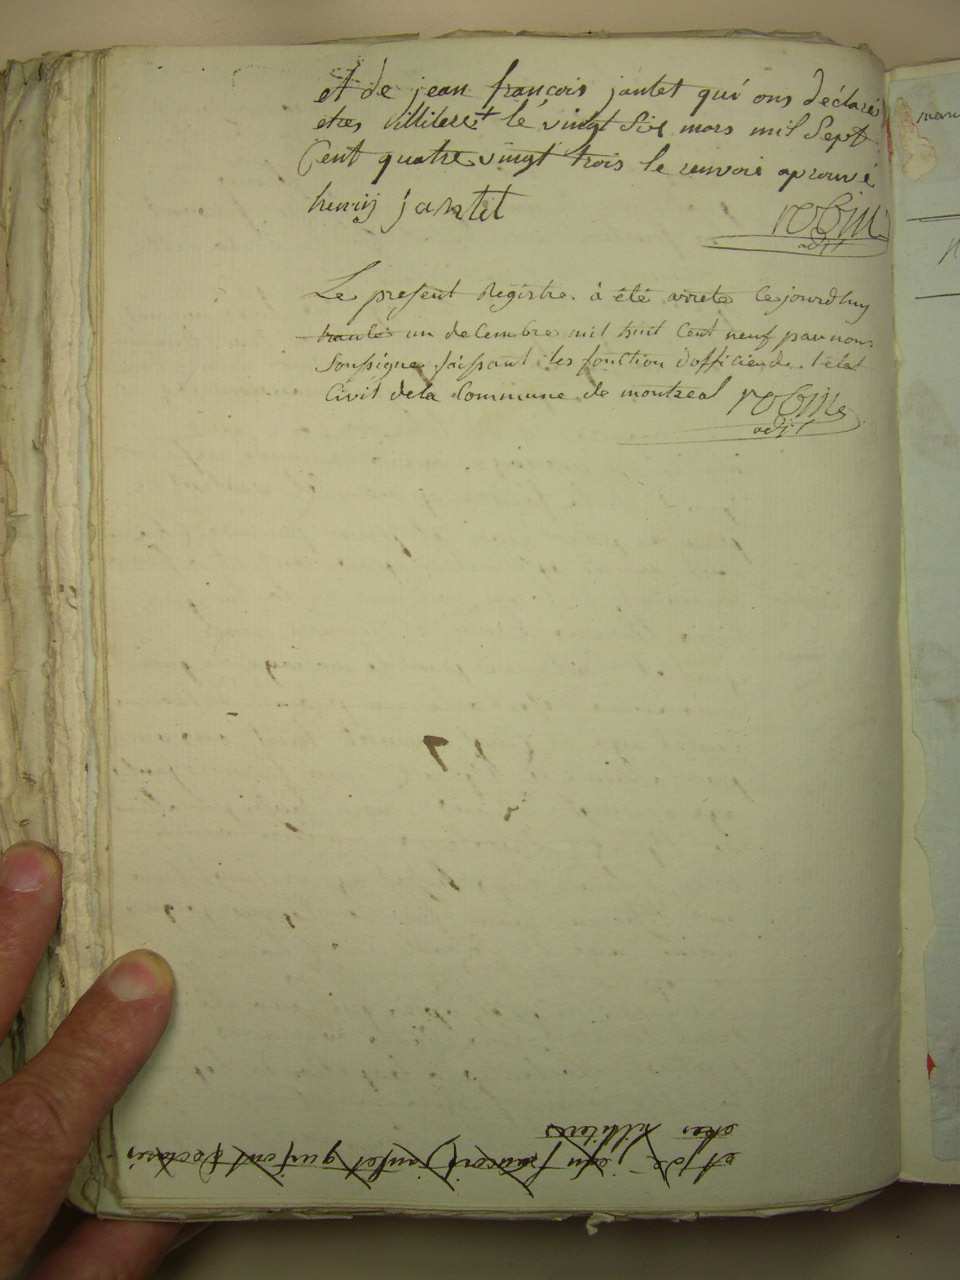 et de jean francois jantet qui ons déclarés
etres Villiteré+ le vingt Six mars mil Sept
Cent quatre vingt trois le renvoi aprouvé
henrij jantet
robin
adjt
Le present Registre a été arrete Cejourdhuy
trante un decembre mil huit Cent neuf par nous
Soussigne faissant les fonction dofficier de letat
Civil dela Commune de montreal robin
adjt
et de jean francois jantet qui ont Declarés
etres Villiterés